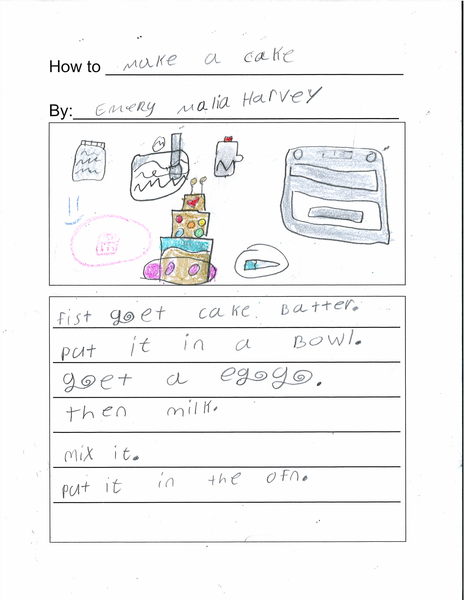 How to make a cake
By: Emery Malia Harvey
fist goet cake Batter.
put it in a Bowl.
goet a egogo.
then milk.
mix it.
put it in the ofn.